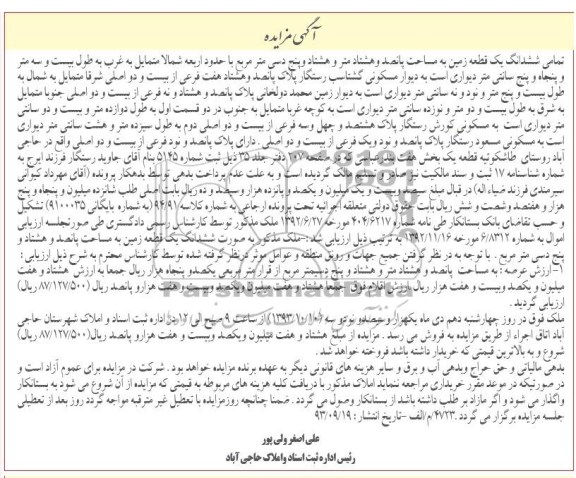 آگهی مزایده
تمامی ششدانگ یک قطعه زمین به مساحت پانصد وهشتاد متر و هشتاد وپنج دسی متر مربع با حدود اربعه شمالا متمایل به غرب به طول بیست و سه متر
و پنجاه و پنج سانتی متر دیواری است به دیوار مسکونی گشتاسب رستگار پلاک پانصد وهشتاد هفت فرعی از بیست و دو اصلی شرقا متمایل به شمال به
طول بیست و پنج متر و نود و نه سانتی متر دیواری است به دیوار زمین محمد دولخانی پلاک پانصد و هشتاد و نه فرعی از بیست و دو اصلی جنوبا متمایل
به شرق به طول بیست و دو متر و نوزده سانتی متر دیواری است به کوچه غربا متمایل به جنوب در دو قسمت اول به طول دوازده متر و بیست و دو سانتی
متر دیواری است به مسکونی کورش رستگار پلاک هشتصد و چهل وسه فرعی از بیست و دو اصلی دوم به طول سیزده متر و هشت سانتی متر دیواری
است به مسکونی مسعود رستگار پلاک پانصد و نود ویک فرعی از بیست و دو اصلی . دارای پلاک پانصد و نود فرعی از بیست و دو اصلی واقع در حاجی
آباد روستای طاشکوئیه قطعه یک بخش هفت که در صفحه ۱۰۷ دفتر جلد ۳۵ ذیل ثبت شماره ۵۱۴۵ بنام آقای جاوید رستگار فرزند ایرج به
شماره شناسنامه ۱۷ ثبت و سند مالکیت صادر و تسلیم مالک گردیده است و به علت عدم پرداخت بدهی توسط بدهکار پرونده (آقای مهرداد کیوانی
سیرمندی فرزند ضیاء اله) در قبال مبلغ سیصد وبیست و یک میلیون و یکصد و پانزده هزار وسیصد و ده ریال بابت اصلی طلب شانزده میلیون و پنجاه و پنج
هزار و هفتصد وشصت و شش ریال بابت حقوق دولتی متعلقه اجرائیه تحت پرونده اجرایی به شماره کلاسه ۹۴۶۹۱ (به شماره بایگانی ۹۱۰۰۰۳۵) تشکیل
و حسب تقاضای بانک بستانکار طی نامه شماره ۴۰۴/۶۲۱۷ مورخه ۱۳۹۲/۶/۲۷ ملک مذکور توسط کارشناس رسمی دادگستری طی صورتجلسه ارزیابی
اموال به شماره ۶/۸۳۱۲ مورخه ۱۳۹۲/۱۱/۱۶ به ترتیب ذیل ارزیابی شد :- ملک مذکور به صورت ششدانگ یک قطعه زمین به مساحت پانصد و هشتاد و
پنج دسی متر مربع . با توجه به در نظر گرفتن جمیع جهات و رونق منطقه و عوامل موثر درنظر گرفته شده توسط کارشناس محترم به شرح ذیل ارزیابی :
۱-ارزش عرصه : به مساحت پانصد و هشتاد متر و هشتاد و پنج دسیمتر مربع از قرار متر مربعی یکصدو پنجاه هزار ریال جمعا به ارزش هشتاد و هفت
میلیون و یکصد وبیست و هفت هزار ریال ارزش اقلام فوق جمعا هشتاد و هفت میلیون ویکصد وبیست و هفت هزارو پانصد ریال (۸۷/۱۲۷/۵۰۰ ریال)
ارزیابی گردید .
ملک فوق در روز چهارشنبه دهم دی ماه یکهزار وسیصدو نودو سه (۱۳۹۳/۱۰/۱۰) از ساعت ۹ صبح الی ۱۲ در اداره ثبت اسناد و املاک شهرستان حاجی
آباد اتاق اجراء از طریق مزایده به فروش می رسد . مزایده از مبلغ هشتاد و هفت میلیون ویکصد وبیست و هفت هزار پانصد ریال(۸۷/۱۲۷/۵۰۰ ریال)
شروع و به بالاترین قیمتی که خریدار داشته باشد فروخته خواهد شد .
بدهی مالیاتی و حق حراج وبدهی آب و برق و سایر هزینه های قانونی دیگر به عهده برنده مزایده خواهد بود . شرکت در مزایده برای عموم آزاد است و
در صورتیکه در موعد مقرر خریداری مراجعه ننماید املاک مذکور با دریافت کلیه هزینه های مربوطه به قیمتی که مزایده از آن شروع می شود به بستانکار
واگذار می شود و اگر مازاد بر طلب داشته باشد از بستانکار وصول می گردد . ضمنا چنانچه روزمزایده با تعطیل غیر مترقبه مواجه گردد روز بعد از تعطیلی
جلسه مزایده برگزار می گردد .۴۷۲۳/م/الف -تاریخ انتشار : ۹۳/۰۹/۱۹
علی اصغر ولی پور
رئیس اداره ثبت اسناد واملاک حاجی آباد
ParsNamadData